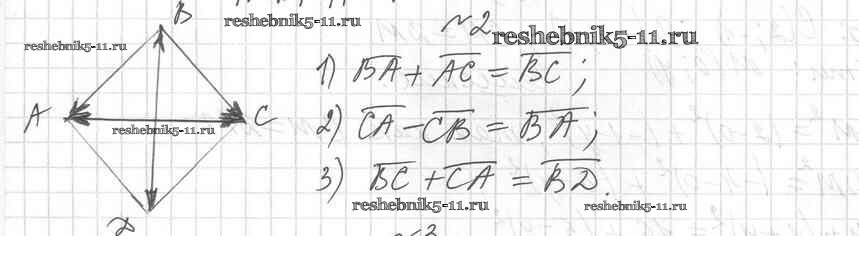 B
reshebnik5-11.ru
№2
reshebnik5-11.ru
reshebnik5-11.ru
1) BA + AC = BC;
A
C
reshebnik5-11.ru
2) CA - CB = BA;
3) BC + CA = BD.
reshebnik5-11.ru
reshebnik5-11.ru
D